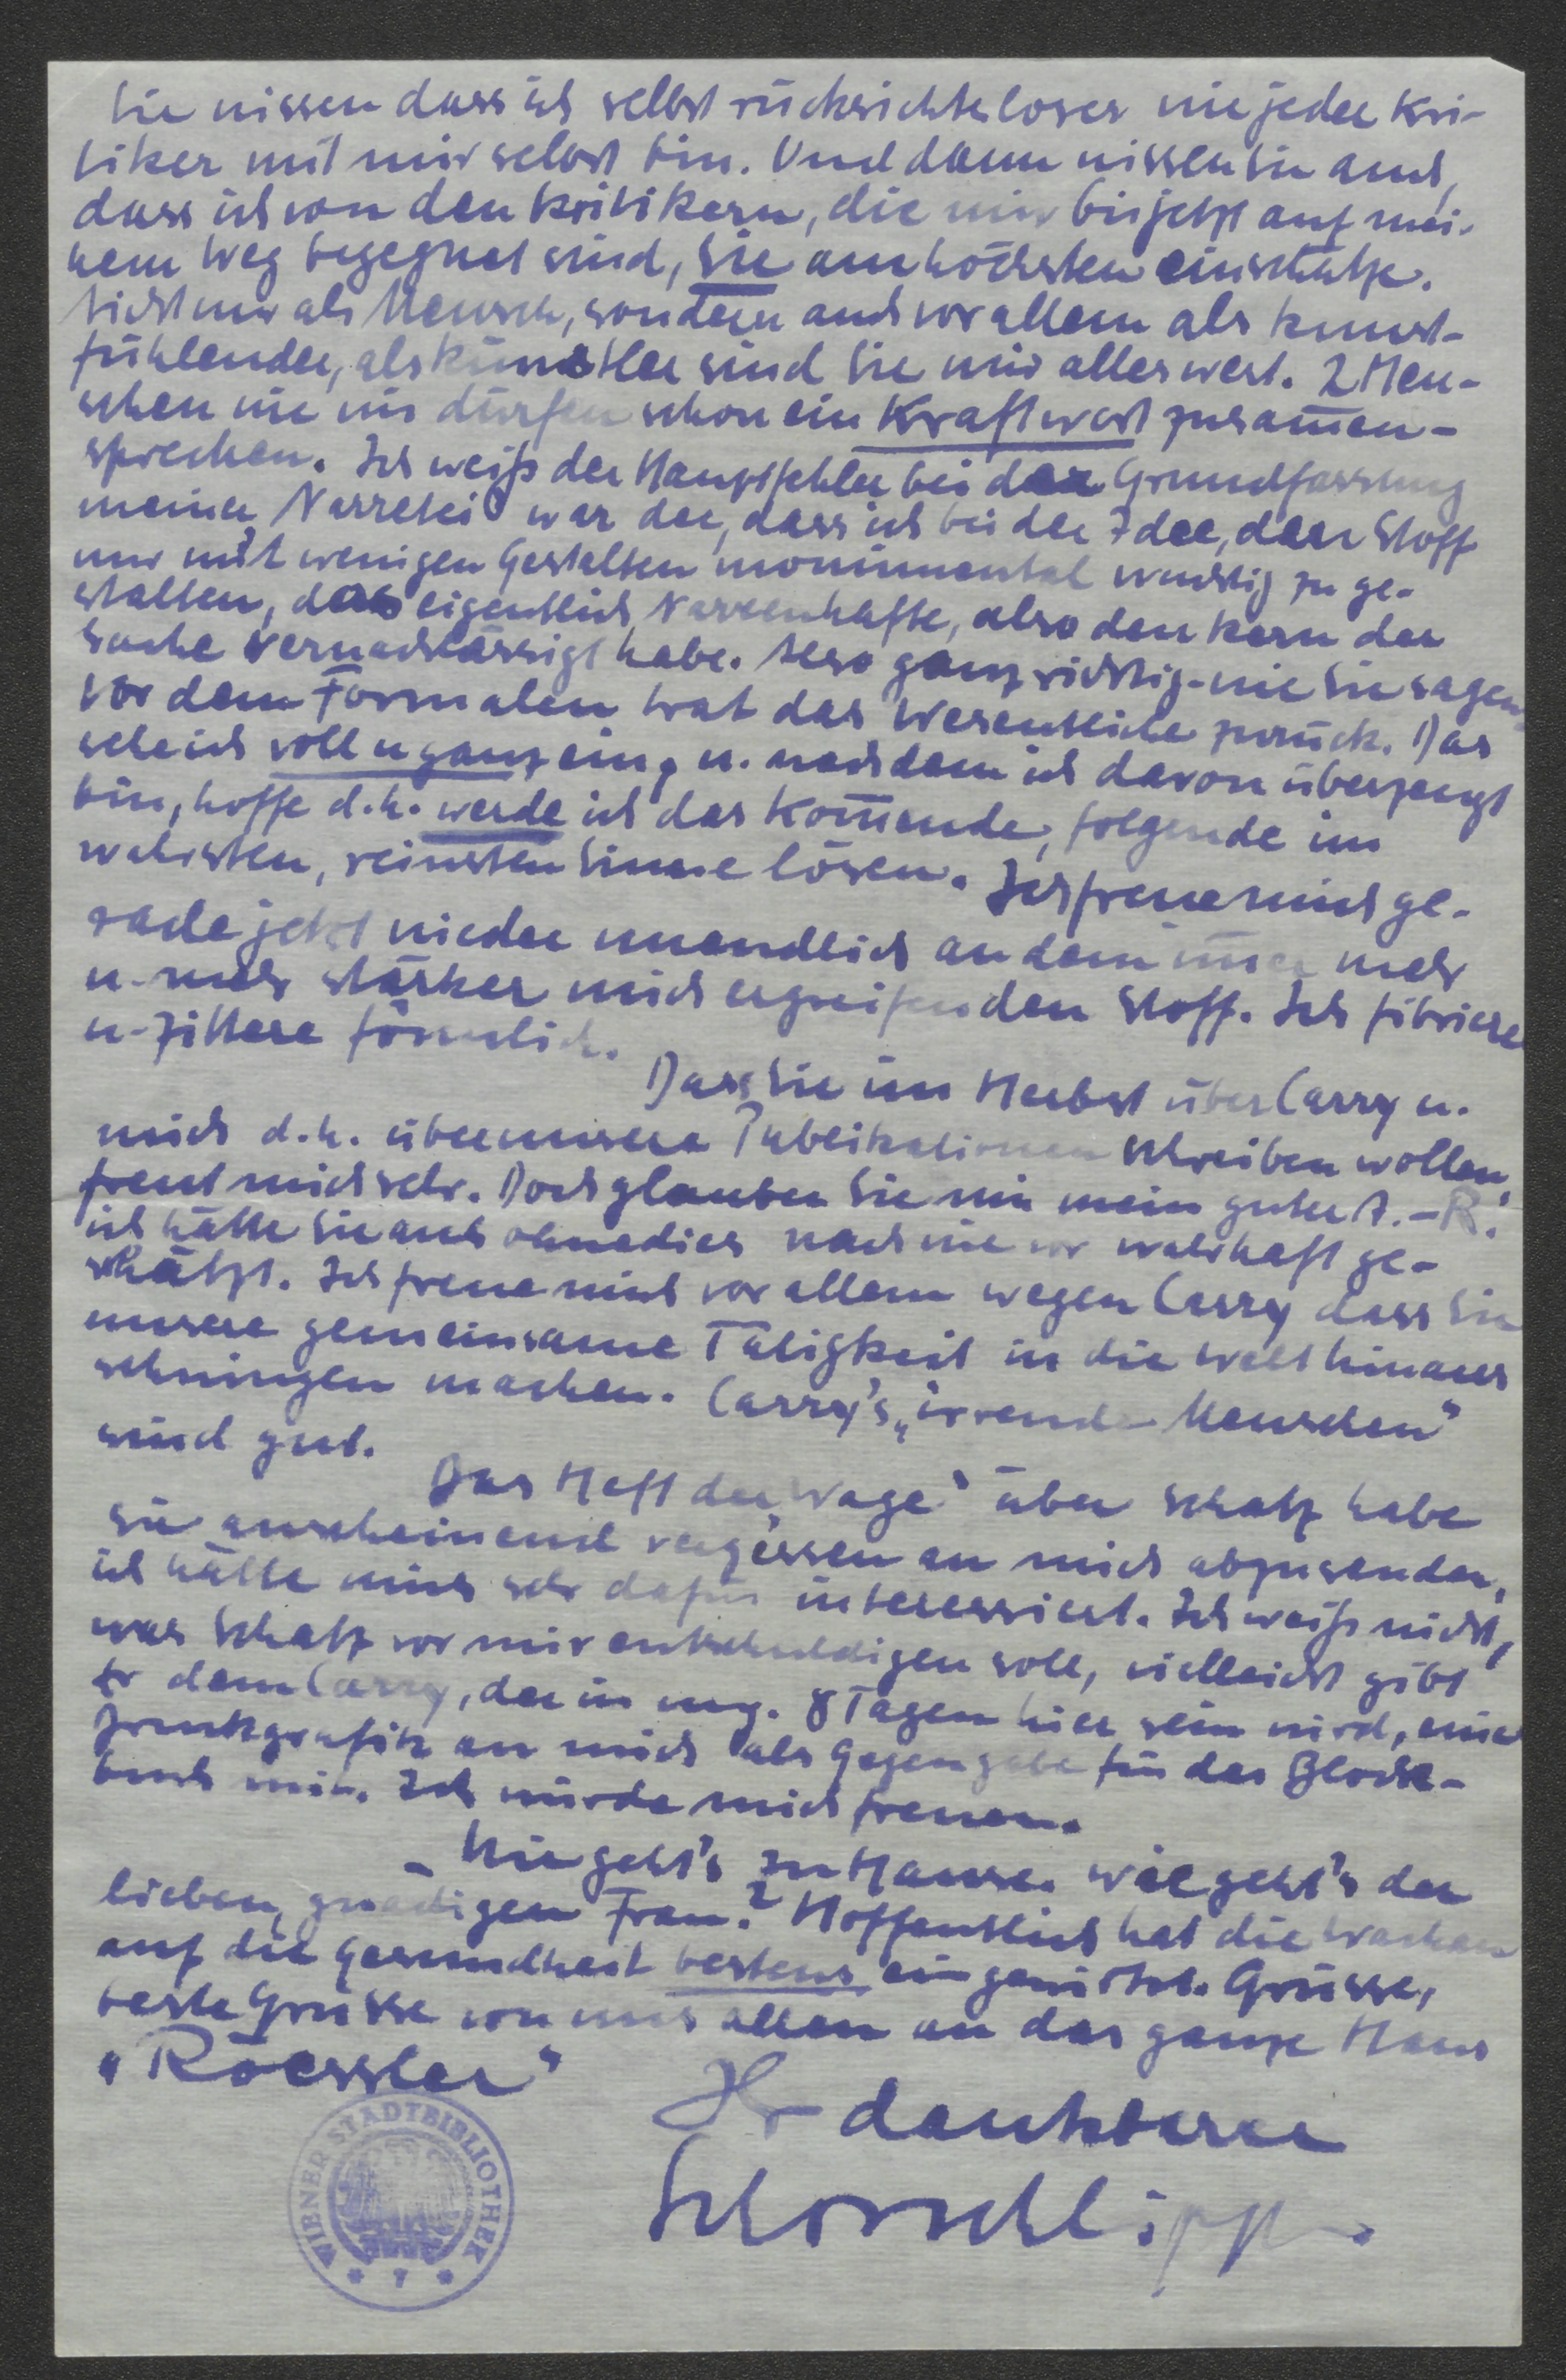 Sie wissen dass ich selbst rücksichtsloser wie jeder Kri-
tiker mit mir selbst bin. Und dann wissen Sie auch,
dass ich von den Kritikern, die mir bis jetzt auf mei-
nem Weg begegnet sind, Sie am höchsten einschätze.
Nicht nur als Mensch, sondern auch vor allem als kunst-
fühlender, als Künstler sind Sie mir alles wert. 2 Men-
schen wie wir dürfen schon ein Kraftwort zusam̄en-
sprechen. Ich weiß der Hauptfehler bei der Grundfassung
meiner Narretei war der, dass ich bei der Idee, den Stoff
nur mit wenigen Gestalten monumental wuchtig zu ge-
stalten, das eigentlich Narrenhafte, also den Kern der
Sache vernachlässigt habe. Also ganz richtig - wie Sie sagen
vor dem Formalen trat das Wesentliche zurück. Das
sehe ich voll u ganz ein, u. nachdem ich davon überzeugt
bin, hoffe d.h. werde ich das Kom̄ende, folgende im
wahrsten, reinsten Sinne lösen. Ich freue mich ge-
rade jetzt wieder unendlich an dem im̄er mehr
u. mehr stärker mich ergreifenden Stoff. Ich fibriere
u. zittere förmlich.
Dass Sie im Herbst über Carry u.
mich d.h. über unsere Publikationen schreiben wollen,
freut mich sehr. Doch glauben Sie mir mein guter A.-R.
ich hätte Sie auch ohnedies nach wie vor wahrhaft ge-
schätzt. Ich freue mich vor allem wegen Carry dass Sie
unsere gemeinsame Tätigkeit in die Welt hinaus
schwingen machen. Carry's „irrende Menschen"
sind gut.
Das Heft der „Wage" über Schatz habe
Sie anscheinend vergessen an mich abzusenden,
ich hätte mich sehr dafür interessiert. Ich weiß nicht,
was Schatz vor mir entschuldigen soll, vielleicht gibt
er dem Carry, der in ung. 8 Tagen hier sein wird, eine
Druckgrafik an mich als Gegengabe für das Block-
buch mit. Ich würde mich freuen.
- Wie geht's zu Hause. Wie geht's der
lieben, gnädigen Frau? Hoffentlich hat die Wachau
auf die Gesundheit bestens eingewirkt. Grüsse,
beste Grüsse von uns allen an das ganze Haus
„Roessler"
Ihr dankbarer
WIENER STADTBIBLIOTHEK